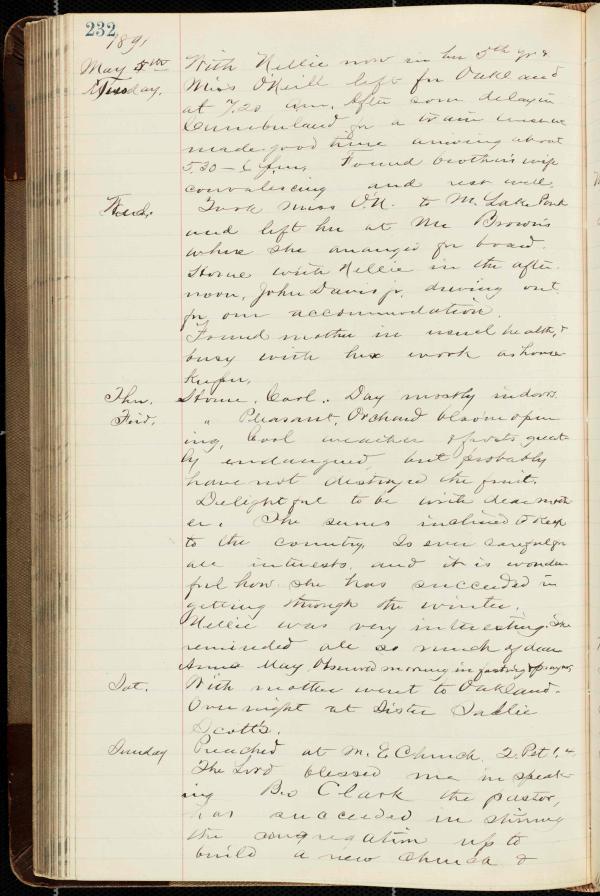 232
1891
May 5th With Nellie now in her 5th yr &
Tuesday. Miss O'Neill left for Oakland
at 7.20 a.m. After some delay in
Cumberland for a train
made good time arriving about
5.30 - 6 p.m. Found brother's wife
convalescing and rest well.
Wed. Took Miss O'N. to Mt. Lake Park
and left her at Mr Brown's
where she arranged for board.
Home with Nellie in the after-
noon, John Davis jr. driving out
for our accommodation.
Found mother in usual health, &
busy with her work as house
keeper.
Thu. Home. Cool. Day mostly indoors.
Frid. " Pleasant. Orchard bloom open
ing, Cool weather & frosts great
ly endangered, but probably
have not destroyed the fruit.
Delightful to be with dear moth
er. She seems inclined to keep
to the country, Is ever careful for
all interests, and it is wonder
ful how she has succeeded in
getting through the winter.
Nellie was very interesting. She
reminded all so much of dear
Annie May Observed morning in fasting & prayer,
Sat. With mother went to Oakland.
Over night at Sister Sallie
Scott's.
Sunday Preached at M. E. Church, 2 Pet 1.4
The Lord blessed me in speak-
ing Bro Clark the pastor,
has succeeded in stirring
the congregation up to
build a new church &